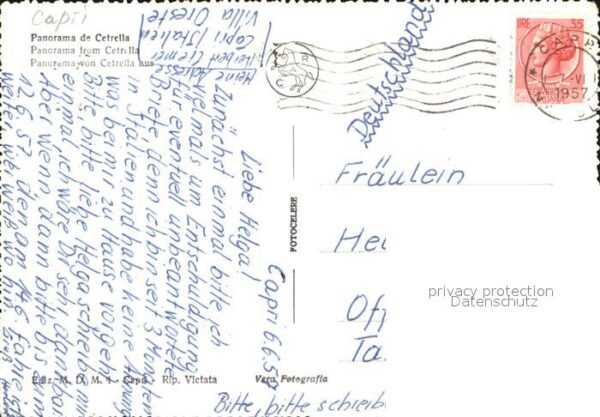 Capri
Panorama de Cetrella
Panorama from Cetrella
Panorama von Cetrella aus
LIRE 35
CAPRI
1957
Deutschland
Fräulein
He
Of
Ta
privacy protection
Datenschutz
FOTOCELERE
Capri 6.6.57
Liebe Helga!
Zunächst einmal bitte ich
vielmals um Entschuldigung
für eventuell unbeantwortete
Briefe, denn ich bin seit 3 Monaten
in Italien und habe keine Ahnung
was bei mir zu Hause vorgeht.
Bitte, bitte, liebe Helga schreib mir
einmal, ich wäre Dir sehr dankbar.
Aber wenn dann bitte bis zum
12.6.57, denn am 14.6. fahre ich
weiter, wer weiß wohin
Gruß
Meine Adresse
Herbert
Capri / Italien
Villa Oreste
Bitte, bitte schreibe
Ediz. M. D. M. - Capri - Rip. Vietata
Vera Fotografia